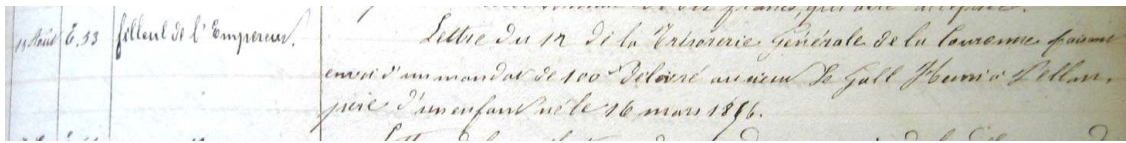 de dix francs, qui a été acceptée.
15 Août E. 33 filleul de l'Empereur. Lettre du 12 de la Trésorerie Générale de la Couronne faisant
envoi d'un mandat de 100f délivré au sieur Le Gall Henri à
père d'un enfant né le 16 mars 1856.